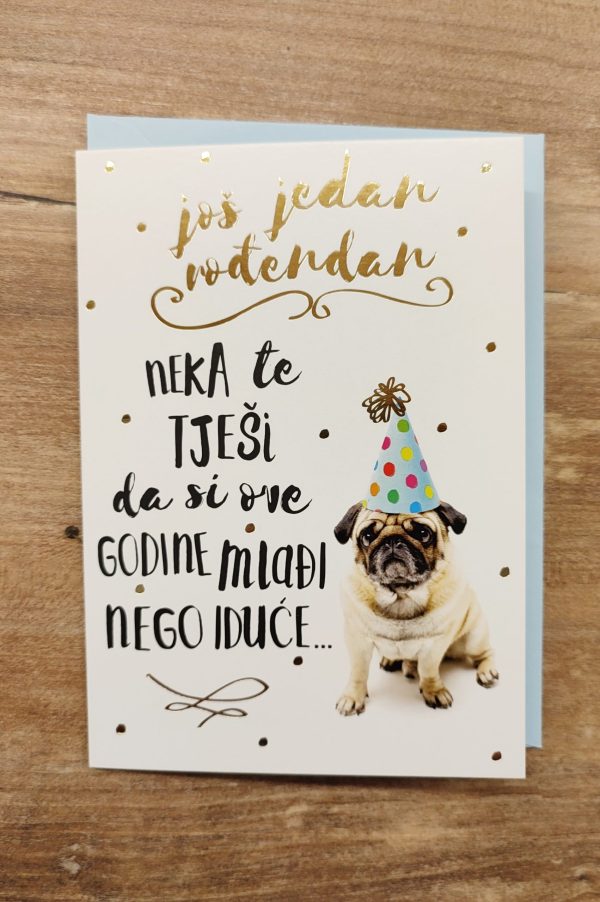 još jedan
rođendan
NEKA te
TJEŠi
da si ove
GODINE mlađi
NEGO IDUĆE...